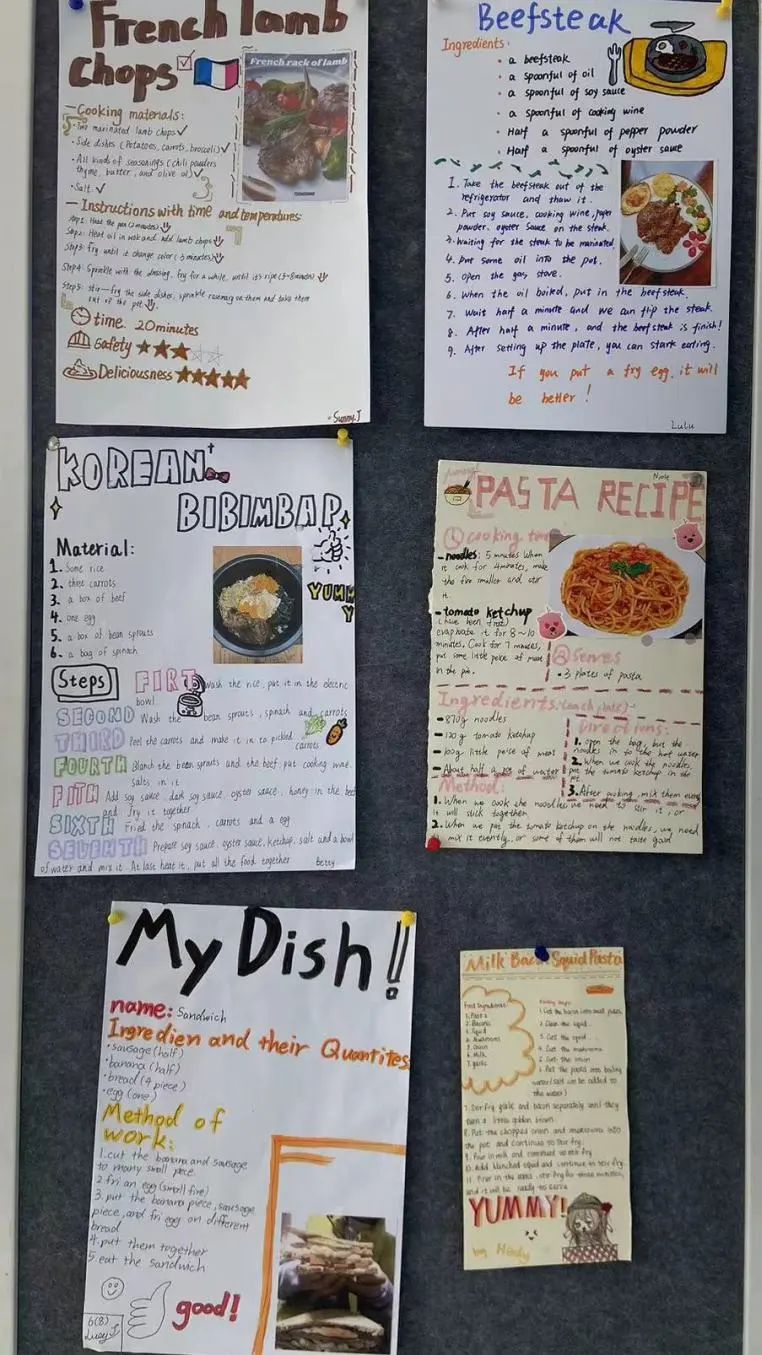 French lamb
Chops
French rack of lamb
Cooking materials:
marinated lamb chops
Side dishes (Potatoes, carrots, broccoli)
All kinds of seasonings (chili powders
thyme, butter, and olive oil)
Salt
Instructions with time and temperatures:
Step1: Heat the pan (2minutes)
Step2: Heat oil in wok and add lamb chops
Step3: Fry until it change color (3 minutes)
Step4: Sprinkle with the dressing, fry for a while, until it's ripe (3-8minutes)
Step5: stir-fry the side dishes, sprinkle rosemary on them and take them
out of the pot
time. 20minutes
Safety
Deliciousness
Sunny J
Beefsteak
Ingredients:
a beefsteak
a spoonful of oil
a spoonful of soy sauce
a spoonful of cooking wine
Half a spoonful of pepper powder
Half a spoonful of oyster sauce
1. Take the beefsteak out of the
refrigerator and thaw it.
2. Put soy sauce, cooking wine,
powder, oyster sauce on the steak.
3. Waiting for the steak to be marinated.
4. put some oil into the pot.
5. Open the gas stove.
6. When the oil boiled, put in the beefsteak.
7. Wait half a minute and we can flip the steak.
8. After half a minute, and the beefsteak is finish!
9. After setting up the plate, you can start eating.
If you put a fry egg, it will
be better!
Lulu
KOREAN
BIBIMBAP
Material:
1. Some rice
2. three carrots
3. a box of beef
4. one egg
5. a box of bean sprouts
6. a bag of spinach
YUMM
Y
Steps
FIRT wash the rice, put it in the electric
bowl.
SECOND Wash the bean sprouts, spinach and carrots
THIRD Peel the carrots and make it in to pickled
carrots
FOURTH Blanch the bean sprouts and the beef, put cooking wine,
salts in it
FITH Add soy sauce, dark soy sauce, oyster sauce, honey in the beef
and fry it together
SIXTH Fried the spinach, carrots and a egg
SEVENTH Prepare soy sauce, oyster sauce, ketchup, salt and a bowl
of water and mix it. At last heat it, put all the food together
betty
PASTA RECIPE
cooking time
- noodles: 5 minutes When
it cook for 4minutes, make
the fire smaller and stir
it.
- tomato ketchup
(have been fried)
evaporate it for 8~10
minutes. Cook for 7 minutes,
put some little peice of meat
in the
Serves
3 plates of pasta
Ingredients: (each plate)
870g noodles
120g tomato ketchup
100g little peise of meat
About half a pot of water
Directions:
1. open the bag, put the
noodles in to the hot water
2. When we cook the noodles,
put the tomato ketchup in the
3. After cooking, mix them evenly
Method:
1. When we cook the noodles, we need to stir it, or
it will stick together
2. When we put the tomato ketchup on the noodles, we need
mix it evenly, or some of them will not taste good
My Dish!!
name: Sandwich
Ingredien and their Quantites
sausage (half)
banana (half)
bread (4 piece)
egg (one)
Method of
work:
1. cut the banana and sausage
to many small piece
2 fri an egg (small fire)
3. put the banana piece, sausage
piece, and fri egg on different
bread
4. put them together
5. eat the sandwich
good!
6(8)
Lucy J
Milk Bacon Squid Pasta
Food Ingredients:
1. Pasta
2. Bacon
3. Squid
4. Mushrooms
5. Onion
6. Milk
7. garlic
1. Cut the bacon into small pieces
2. Clean the squid
3. Cut the squid
4. Cut the mushrooms
5. Cut the onion
6. Put the pasta into boiling
water (salt can be added to
the water)
7. Stir fry garlic and bacon separately until they
turn a little golden brown.
8. Put the chopped onion and mushrooms into
the pot and continue to stir fry.
9. Pour in milk and continue to stir fry
10. Add blanched squid and continue to stir fry
11. Pour in the pasta, stir fry for three minutes,
and it will be ready to serve
YUMMY!
by